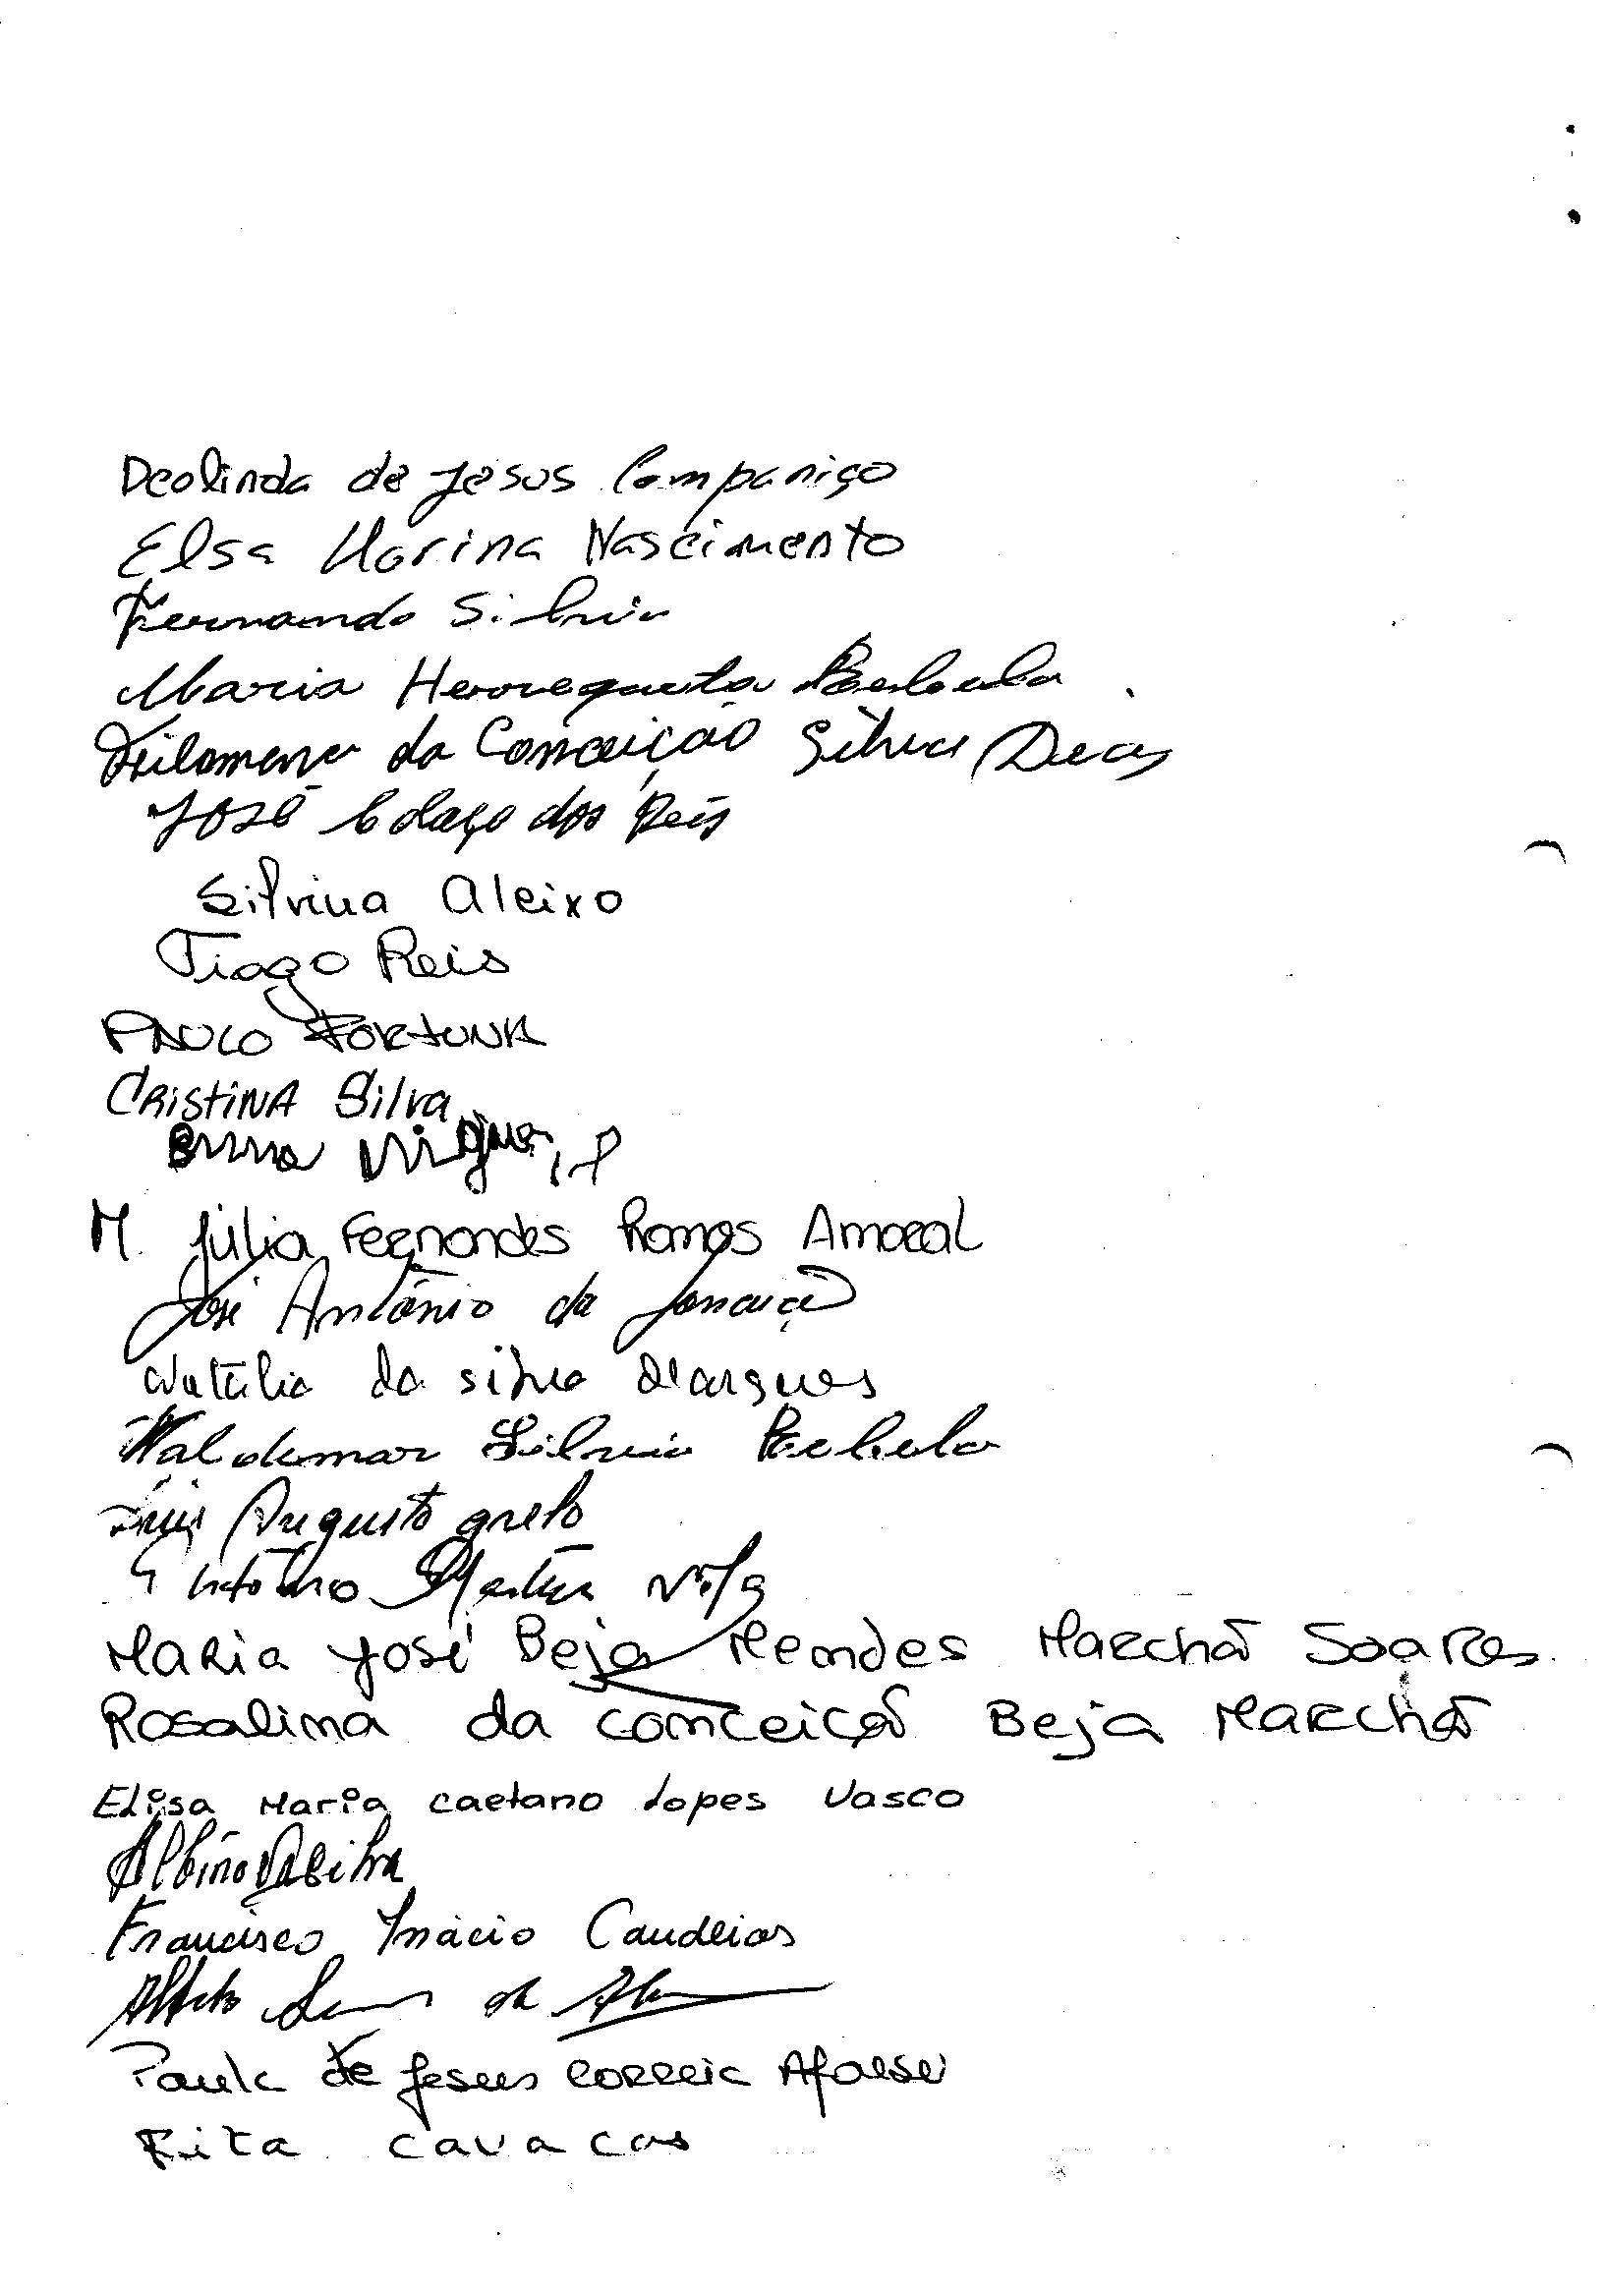 Deolinda de Jesus Companiço
Elsa Marina Nascimento
Fernando Silvia
Maria Henriqueta
Filomena da Conceição Silva Dias
José Colaço dos Reis
Silvina Aleixo
Tiago Reis
PAULO FORTUNA
CRISTINA Silva
Bruno
M. Júlia Fernandes Ramos Amaral
José António da Conceição
Natália da Silva Marques
Waldemar Silvia
Luis Augusto grelo
António Martins
Maria José Beja Mendes Marchão Soares
Rosalina da Conceição Beja Marchão
Elisa Maria Caetano Lopes Vasco
Albino da Silva
Francisco Inácio Candeias
Alberto
Paula de Jesus Correia
Rita Cavacas